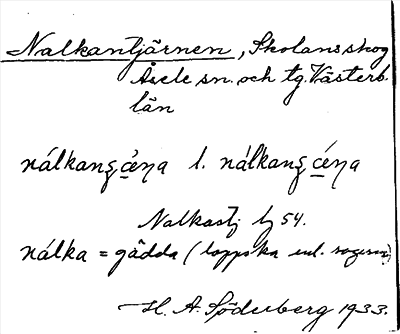 Nalkantjärnen, Skolans skog
Åsele sn. och tg. Västerb.
län
nálkansc̨ėŋa l. nálkansc̨éŋa
Nalkastj by 54.
nálka = gädda (lappska enl. sagesm)
H. A. Söderberg 1933.